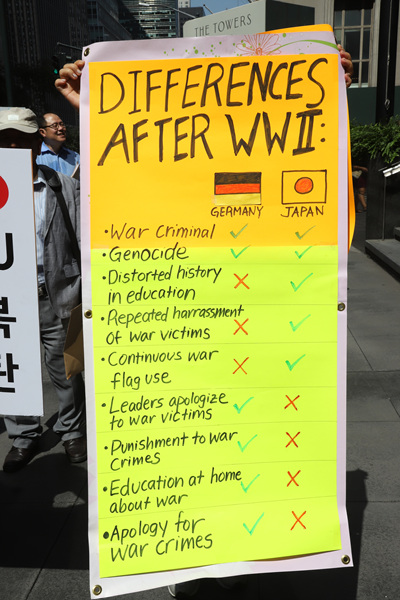 THE TOWERS
DIFFERENCES
AFTER WWII:
GERMANY JAPAN
• War Criminal ✓ ✓
• Genocide ✓ ✓
• Distorted history
in education ✗ ✓
• Repeated harrassment
of war victims ✗ ✓
• Continuous war
flag use ✗ ✓
• Leaders apologize
to war victims ✓ ✗
• Punishment to war
Crimes ✓ ✗
• Education at home
about war ✓ ✗
• Apology for
war crimes ✓ ✗